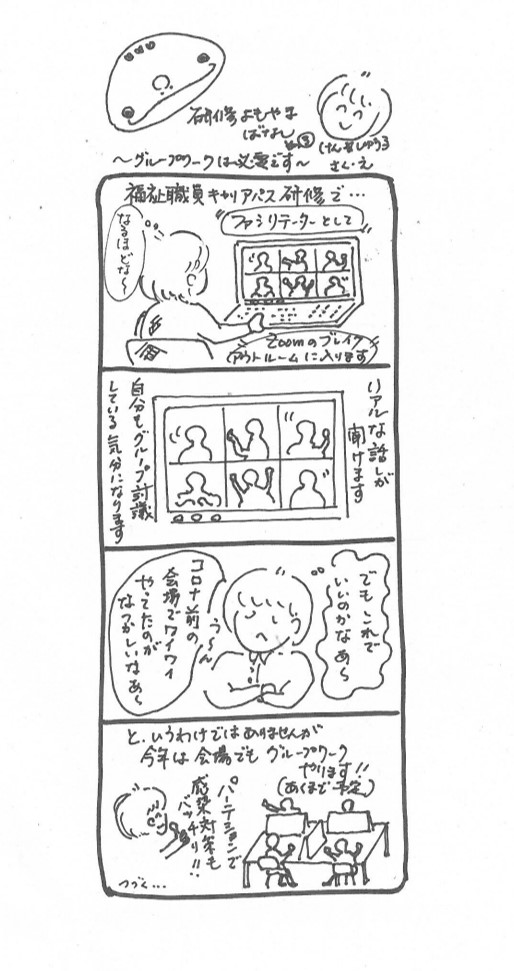 研修よもやま
ばなし
その③
けんしゅう子
さく・え
〜グループワークは必要です〜
福祉職員キャリアパス研修で…
ファシリテーターとして
なるほどな〜
Zoomのブレイク
アウトルームに入ります
リアルな話しが
聞けます
自分もグループ討議
している気分になります
でもこれで
いいのかなあ〜
う〜ん
コロナ前の
会場でワイワイ
やってたのが
なつかしいなあ〜
と、いうわけではありませんが
今年は会場でもグループワーク
やります!!
(あくまで予定)
パーテーションで
感染対策も
バッチリ!!
つづく…